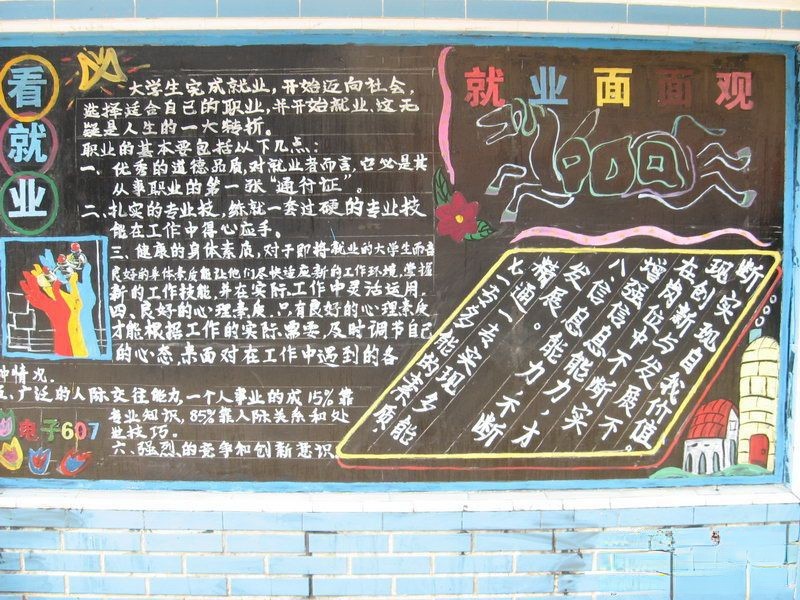 看就业
大学生完成就业，开始迈向社会，
选择适合自己的职业，并开始就业，这无
疑是人生的一大转折。
职业的基本要包括以下几点：
一、优秀的道德品质，对就业者而言，它必是其
从事职业的第一张“通行证”。
二、扎实的专业技，练就一套过硬的专业技
能在工作中得心应手。
三、健康的身体素质，对于即将就业的大学生而言
良好的身体素质能让他们尽快适应新的工作环境，掌握
新的工作技能，并在实际工作中灵活运用，
四、良好的心理素质，只有良好的心理素质
才能根据工作的实际需要，及时调节自己
的心态，来面对在工作中遇到的各
种情况。
五、广泛的人际交往能力，一个人事业的成15%靠
专业知识，85%靠人际关系和处
世技巧。
六、强烈的竞争和创新意识
电子607
就业面面观
断实现自我价值，
现创新与发展不。
在岗位中不断不
增强信息断买
八信息能力，才
发展能力，不断
精通。
七、一专多能的素质，
一专实现多能